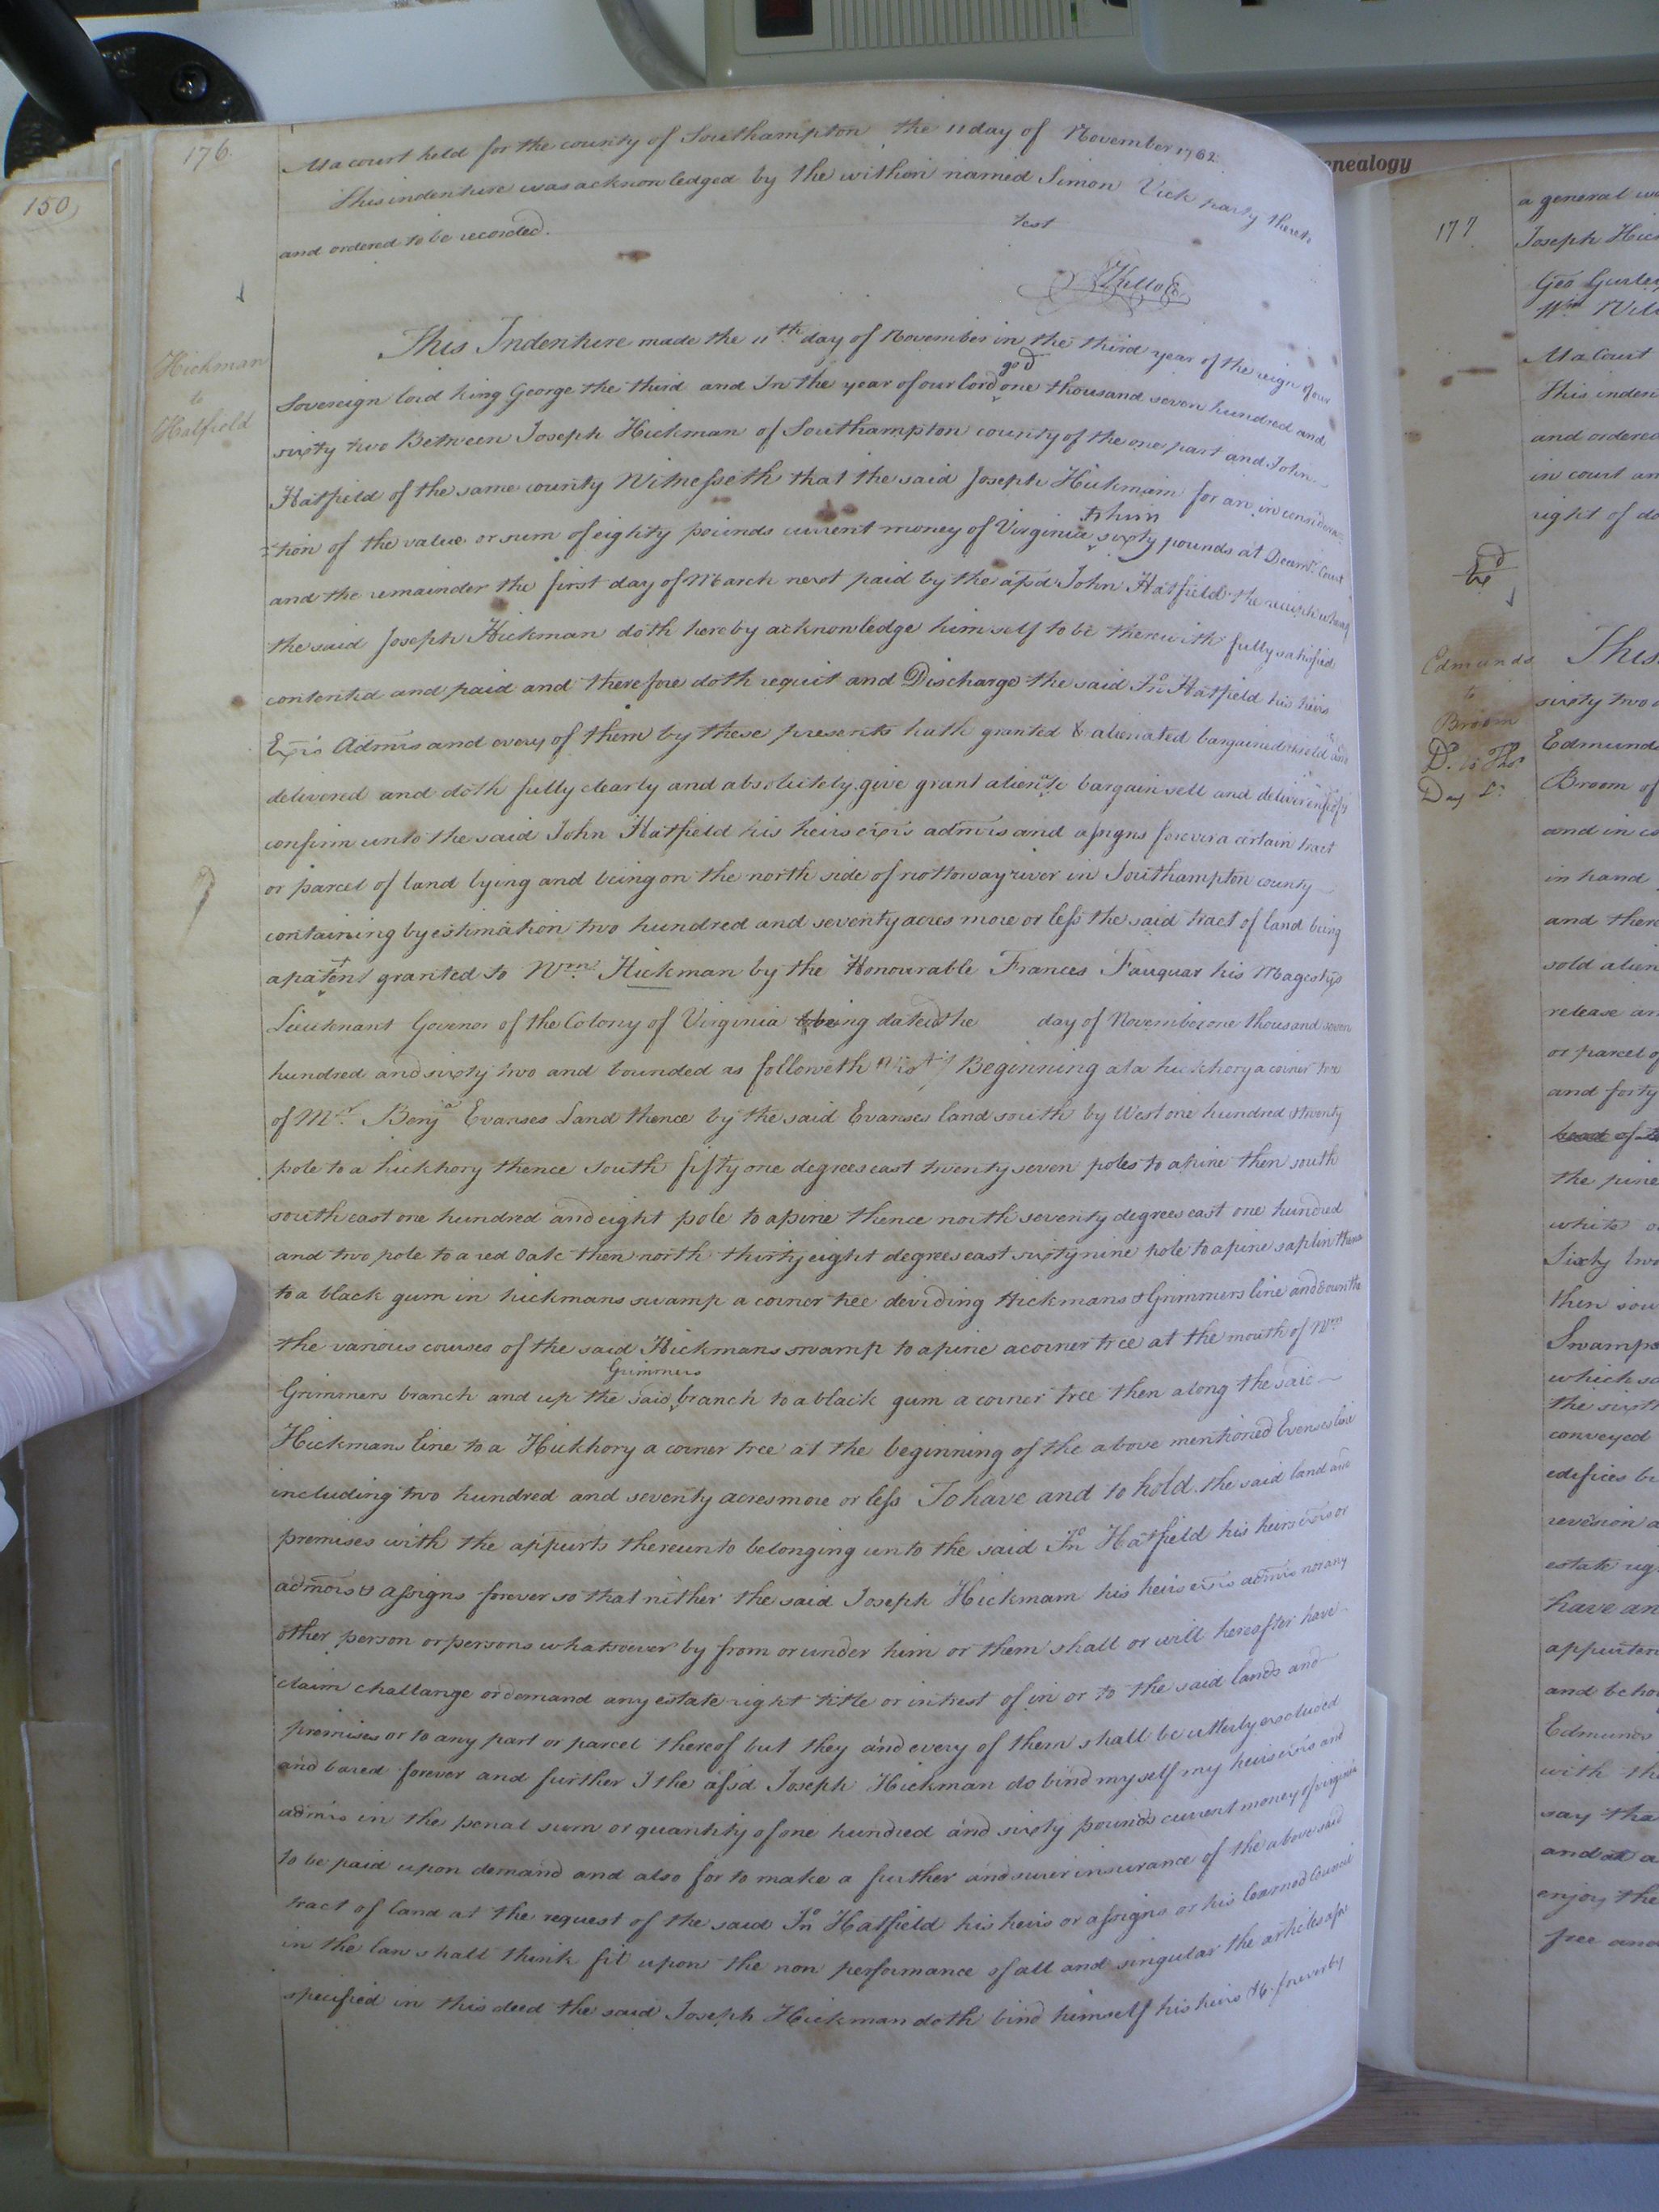 176.
At a court held for the county of Southampton the 11 day of November 1762
This indenture was acknowledged by the within named Simon Vick party thereto
and ordered to be recorded.
test
Hickman
to
Hatfield
This Indenture made the 11th day of November in the third year of the reign of our
Sovereign lord king George the third and In the year of our lord god one thousand seven hundred and
sixty two Between Joseph Hickman of Southampton county of the one part and John
Hatfield of the same county Witnesseth that the said Joseph Hickmam for an in considera
=tion of the value or sum of eighty pounds current money of Virginia to him sixty pounds at Decemr. Court
and the remainder the first day of March next paid by the afsd John Hatfield the receipt whereof
the said Joseph Hickman doth hereby acknowledge himself to be therewith fully satisfied
contented and paid and therefore doth requit and Discharge the said Jno Hatfield his heirs
Exrs Admrs and every of them by these presents hath granted & alienated bargained & sold and
delivered and doth fully clearly and absolutely give grant alienate bargain sell and deliver
confirm unto the said John Hatfield his heirs exrs admrs and assigns forever a certain tract
or parcel of land lying and being on the north side of nottoway river in Southampton county
containing by estimation two hundred and seventy acres more or less the said tract of land being
a patent granted to Wm. Hickman by the Honourable Frances Fauquar his Magestys
Lieutenant Govenor of the Colony of Virginia being dated the day of November one thousand seven
hundred and sixty two and bounded as followeth Beginning at a hickhory a corner tree
of Mr. Benja Evanses Land thence by the said Evanses land south by West one hundred & twenty
pole to a hickhory thence South fifty one degrees east twenty seven poles to a pine then south
south east one hundred and eight pole to a pine thence north seventy degrees east one hundred
and two pole to a red Oak then north thirty eight degrees east sixty nine pole to a pine saplin thence
to a black gum in hickmans swamp a corner tree deviding Hickmans & Grimmers line and down the
the various courses of the said Hickmans swamp to a pine a corner tree at the mouth of Wm
Grimmers branch and up the said Grimmers branch to a black gum a corner tree then along the said
Hickmans line to a Hickhory a corner tree at the beginning of the above mentioned Evenses line
including two hundred and seventy acres more or less To have and to hold the said land and
premises with the appurts thereunto belonging unto the said Jno Hatfield his heirs exrs or
admors & assigns forever so that nither the said Joseph Hickmam his heirs exrs admrs nor any
other person or persons whatsoever by from or under him or them shall or will hereafter have
claim challange or demand any estate right title or intrest of in or to the said lands and
premises or to any part or parcel thereof but they and every of them shall be utterly excluded
and bared forever and further I the afsd Joseph Hickman do bind myself my heirs exrs and
admrs in the penal sum or quantity of one hundred and sixty pounds current money of virginia
to be paid upon demand and also for to make a further and surer insurance of the above said
tract of land at the request of the said Jno Hatfield his heirs or assigns or his learned Council
in the law shall think fit upon the non performance of all and singular the articles afsd
specified in this deed the said Joseph Hickman doth bind himself his heirs &c. firmly by
150
enealogy
177
a general
Joseph
At a Court
This inden
and ordered
in court an
right of do
Edmunds
to
Broom
This
sixty two
Edmunds
Broom of
in hand
and there
sold alien
release an
or parcel of
and forty
the pine
white
Sixty two
then sou
Swamp
conveyed
edifices
estate
have an
and beho
Edmunds
with the
say tha
and
enjoy the
free and